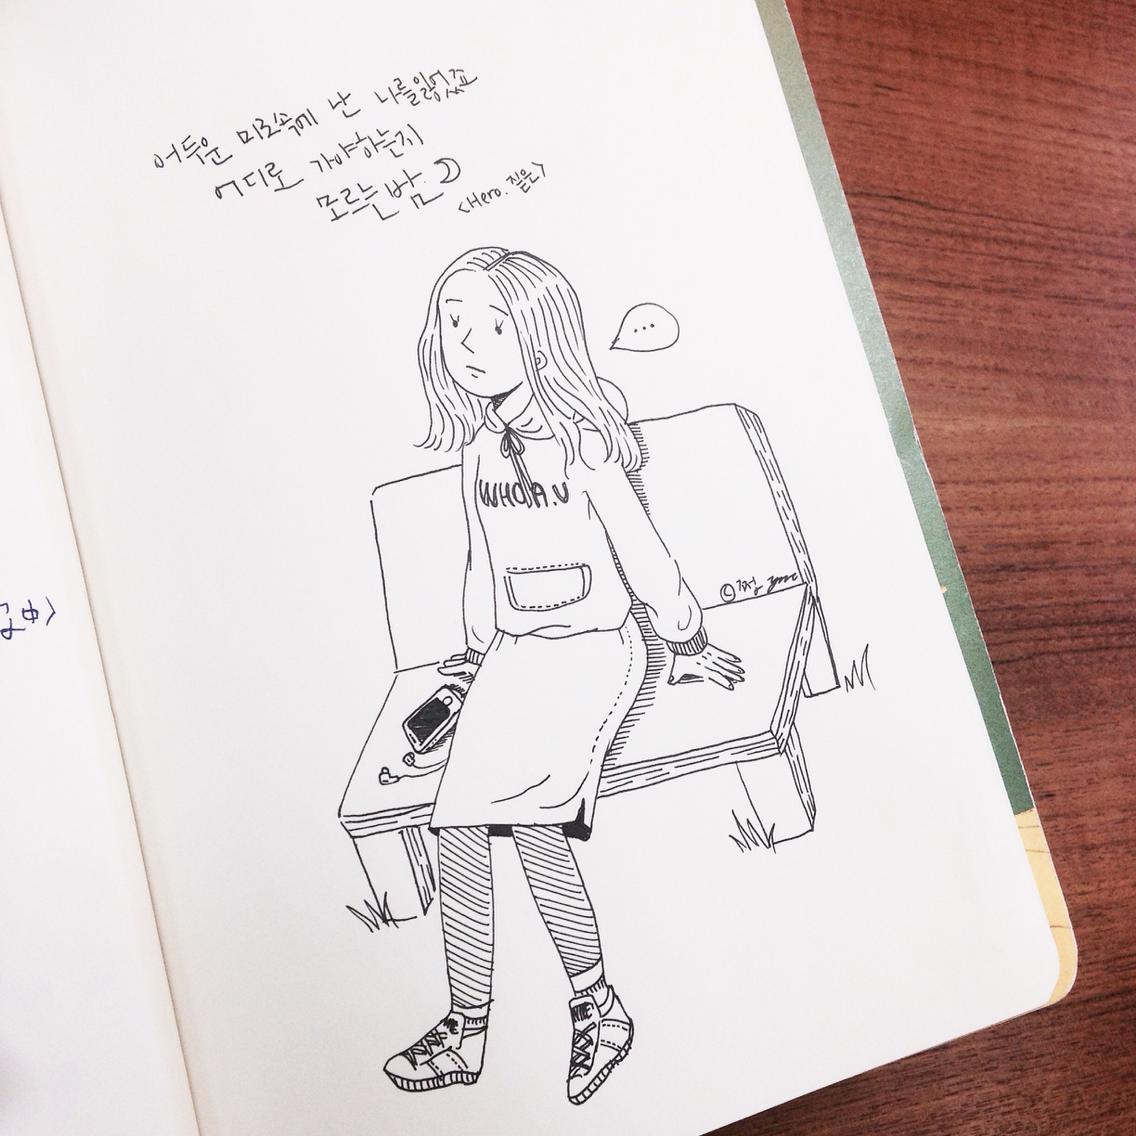 어두운 미로속에 난 나를잃었죠
어디로 가야하는지
모르는 밤
<Hero. 짙은>
...
WHO.A.U
©쩡